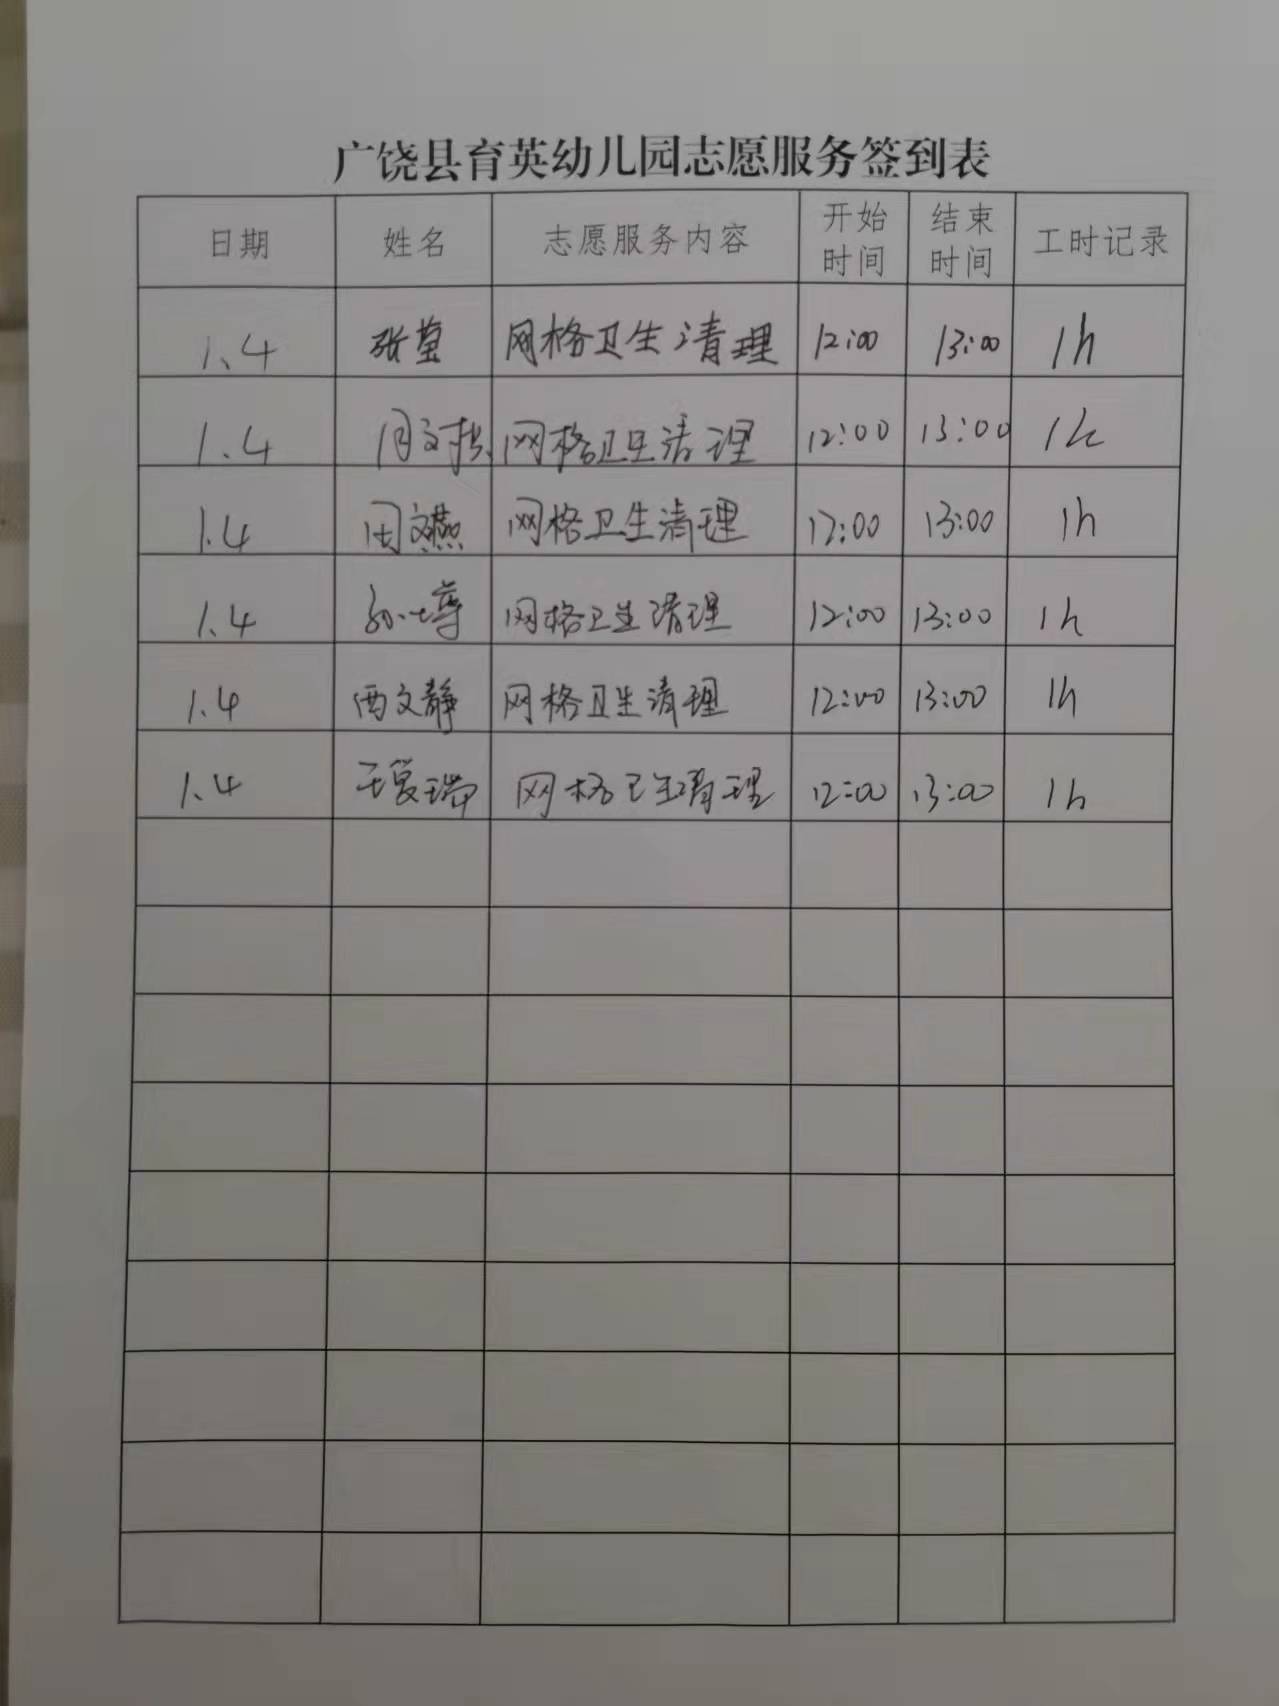 广饶县育英幼儿园志愿服务签到表
日期 姓名 志愿服务内容 开始时间 结束时间 工时记录
1.4 张莹 网格卫生清理 12:00 13:00 1h
1.4 网格卫生清理 12:00 13:00 1h
1.4 田文燕 网格卫生清理 12:00 13:00 1h
1.4 网格卫生清理 12:00 13:00 1h
1.4 西文静 网格卫生清理 12:00 13:00 1h
1.4 网格卫生清理 12:00 13:00 1h